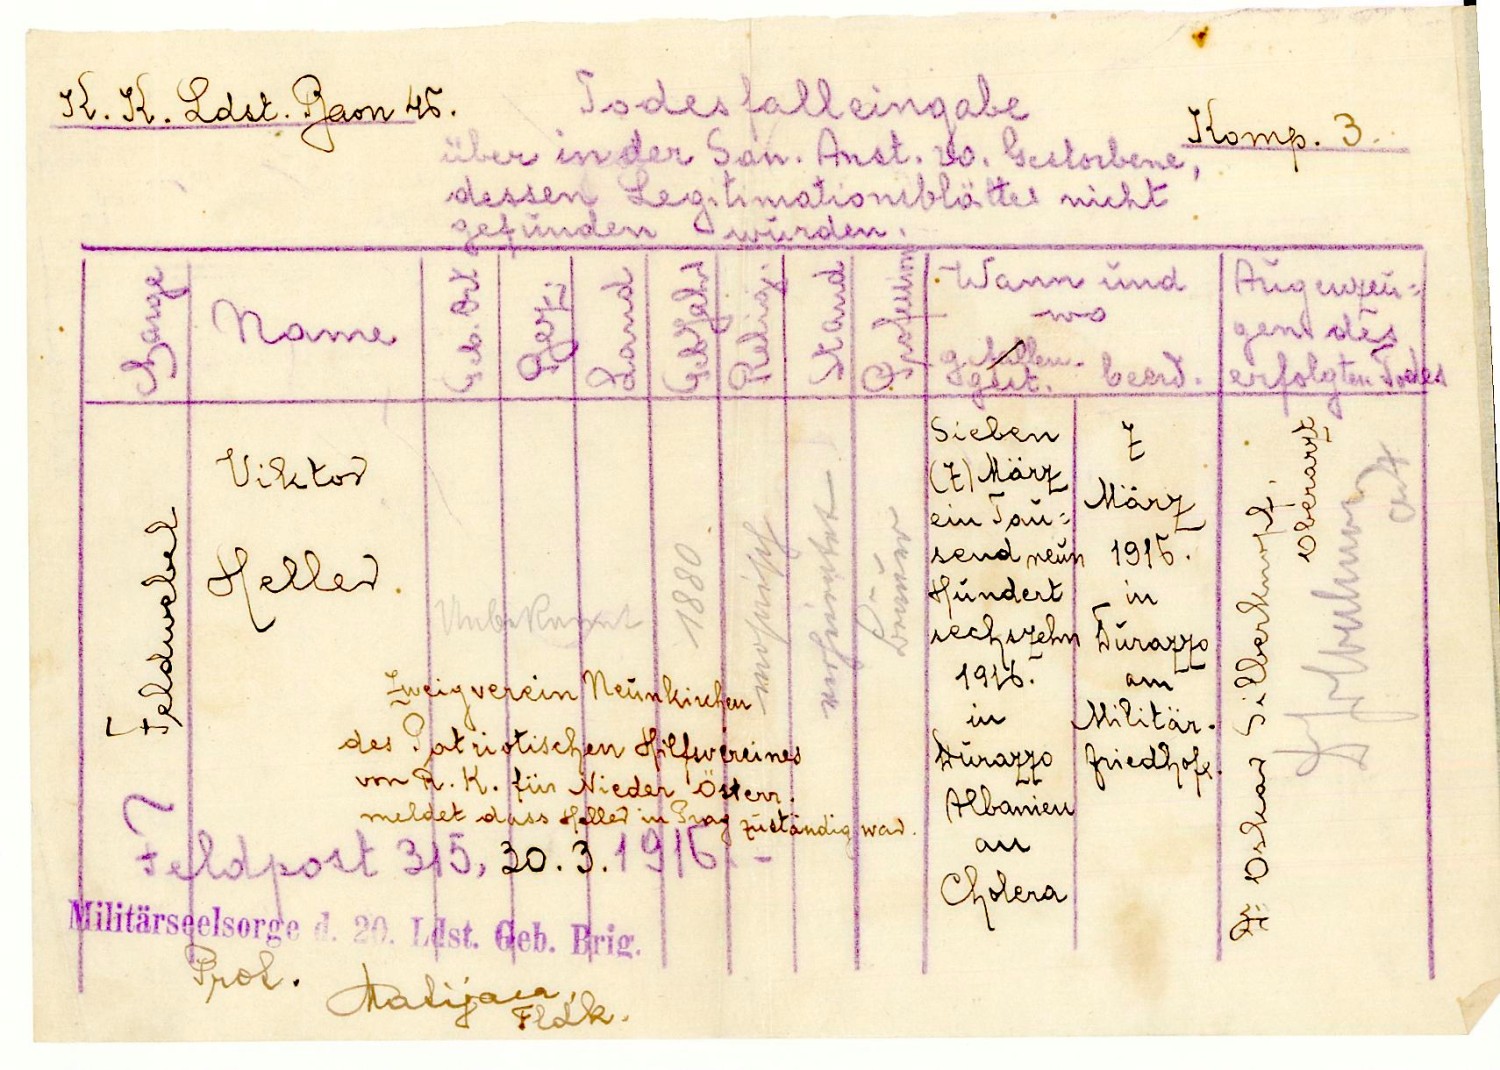 K. K. Ldst. Baon 45.
Todesfalleingabe
Komp. 3.
über in der San. Anst. vo. Gestorbene,
dessen Legitimationsblätter nicht
gefunden wurden.
Charge
Name
Geb. Ort
Bezi.
Land
Geb Jahr
Relig.
Stand
Profession
Wann und
wo
gefallen
gest.
beerd.
Augenzeu=
gen des
erfolgten Todes
Feldwebel
Viktor
Heller.
Unbekannt
1880
Sieben
(7) März
ein Tau=
send neun
Hundert
sechszehn
1916.
in
Durazzo
Albanien
an
Cholera
7
März
1916.
in
Durazzo
am
Militär-
friedhofe.
Dr. Oskar Silberknopf.
Oberarzt
Zweigverein Neunkirchen
des Patriotischen Hilfsvereines
von R. K. für Nieder Österr.
meldet dass Heller in Prag zuständig war.
Feldpost 315, 30. 3. 1916. -
Militärseelsorge d. 20. Ldst. Geb. Brig.
Prot.
Matijaca,
Fldk.